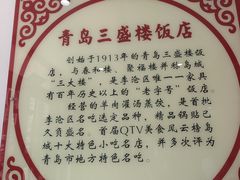 青岛三盛楼饭店
创始于1913年的青岛三盛楼饭店
，与春和楼、聚福楼并称岛城
"三大楼"，是李沧区唯一一家具
有百年历史以上的"老字号"饭店。
经营的羊肉蒸汤蒸饺，是首批
李沧区名吃选定品种，这两种小贴已
久负盛名。首届QTV美食风云榜岛
城十大特色小吃名店，并多次评为
青岛市地方特色名吃。